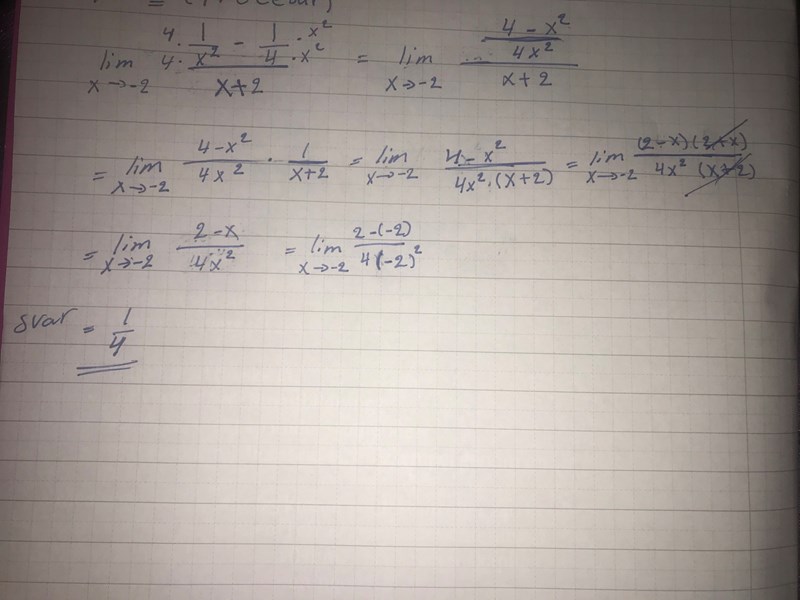 (Procedur)
lim x→-2 (4·1/4·x² - 1·x²/4·x²)/(x+2) = lim x→-2 ((4-x²)/(4x²))/(x+2)
= lim x→-2 (4-x²)/(4x²) · 1/(x+2) = lim x→-2 (4-x²)/(4x²·(x+2)) = lim x→-2 (2-x)(2+x)/(4x²(x+2))
= lim x→-2 (2-x)/(4x²) = lim x→-2 (2-(-2))/(4(-2)²)
svar = 1/4